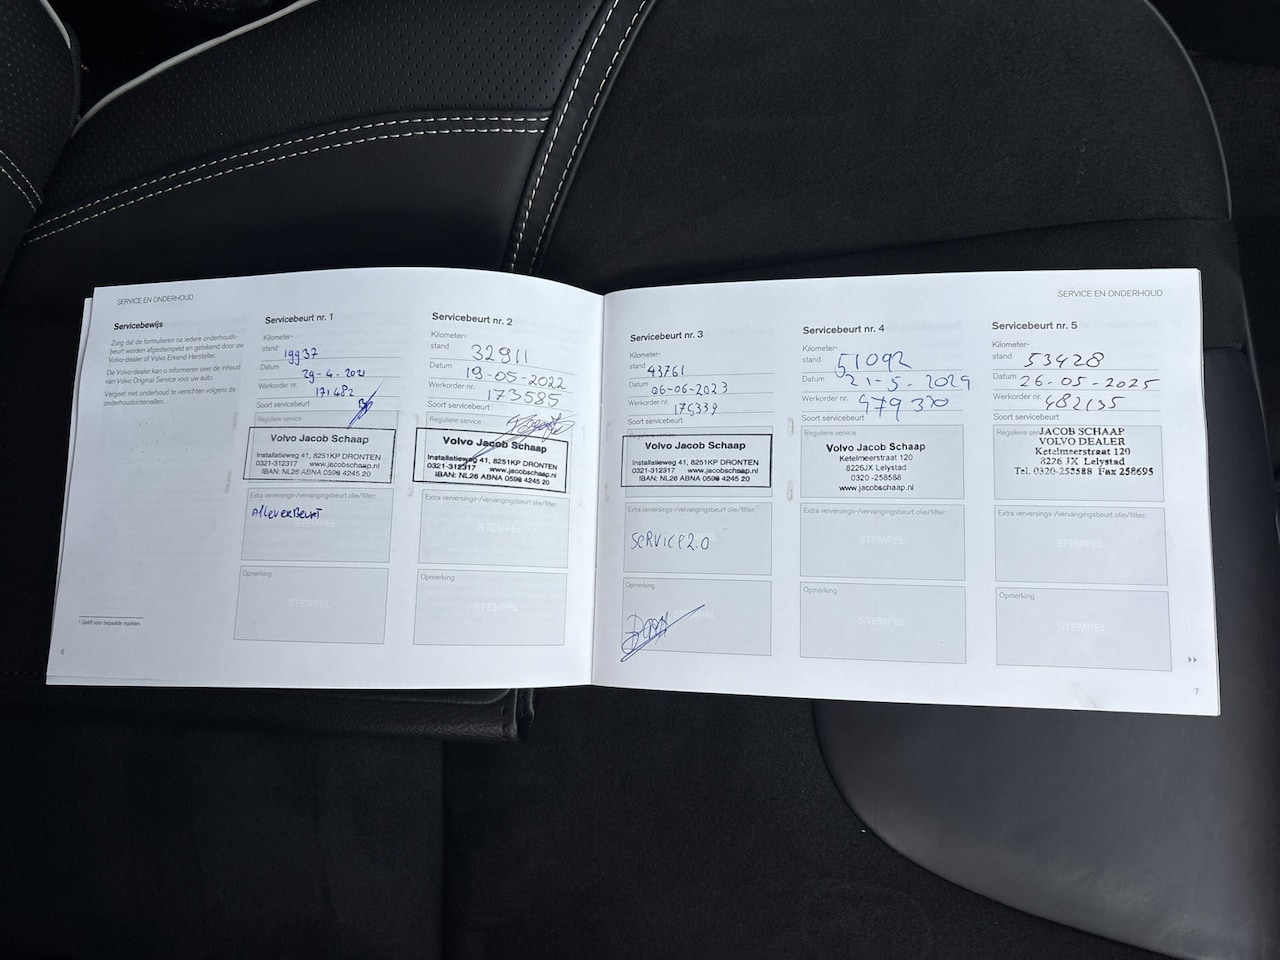 SERVICE EN ONDERHOUD
Servicebewijs
Zorg dat de formulieren na iedere onderhouds-
beurt worden afgestempeld en getekend door uw
Volvo-dealer of Volvo Erkend Hersteller.
De Volvo-dealer kan u informeren over de inhoud
van Volvo Original Service voor uw auto.
Vergeet niet onderhoud te verrichten volgens de
onderhoudsintervallen.
1 Geldt voor bepaalde markten.
6
Servicebeurt nr. 1
Kilometer-
stand 19937
Datum 29-4-2021
Werkorder nr. 171482
Soort servicebeurt
Reguliere service
Volvo Jacob Schaap
Installatieweg 41, 8251KP DRONTEN
0321-312317 www.jacobschaap.nl
IBAN: NL26 ABNA 0598 4245 20
Extra verversings-/vervangingsbeurt olie/filter:
STEMPEL
Opmerking
STEMPEL
Servicebeurt nr. 2
Kilometer-
stand 32911
Datum 19-05-2022
Werkorder nr. 173585
Soort servicebeurt
Reguliere service
Volvo Jacob Schaap
Installatieweg 41, 8251KP DRONTEN
0321-312317 www.jacobschaap.nl
IBAN: NL26 ABNA 0598 4245 20
Extra verversings-/vervangingsbeurt olie/filter:
STEMPEL
Opmerking
STEMPEL
SERVICE EN ONDERHOUD
Servicebeurt nr. 3
Kilometer-
stand 43761
Datum 06-06-2023
Werkorder nr. 175339
Soort servicebeurt
Reguliere service
Volvo Jacob Schaap
Installatieweg 41, 8251KP DRONTEN
0321-312317 www.jacobschaap.nl
IBAN: NL26 ABNA 0598 4245 20
Extra verversings-/vervangingsbeurt olie/filter:
SERVICE 2.0
Opmerking
STEMPEL
Servicebeurt nr. 4
Kilometer-
stand 51092
Datum 21-5-2024
Werkorder nr. 479330
Soort servicebeurt
Reguliere service
Volvo Jacob Schaap
Ketelmeerstraat 120
8226JX Lelystad
0320 -258588
www.jacobschaap.nl
Extra verversings-/vervangingsbeurt olie/filter:
STEMPEL
Opmerking
STEMPEL
Servicebeurt nr. 5
Kilometer-
stand 53428
Datum 26-05-2025
Werkorder nr. 482135
Soort servicebeurt
Reguliere
JACOB SCHAAP
VOLVO DEALER
Ketelmeerstraat 120
8226 JX Lelystad
Tel. 0320-258588 Fax 258695
Extra verversings-/vervangingsbeurt olie/filter:
STEMPEL
Opmerking
STEMPEL
7